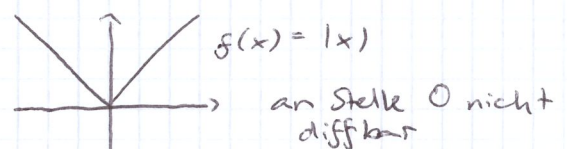 f(x) = |x)
an Stelle 0 nicht
diffbar